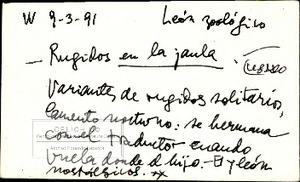 W 9-3-91 León zoológico
— Rugidos en la jaula.
Variante de rugidos solitarios,
lamento nocturno: se hermana
con el traductor cuando
vuela donde el hijo. El y león
nostálgicos.